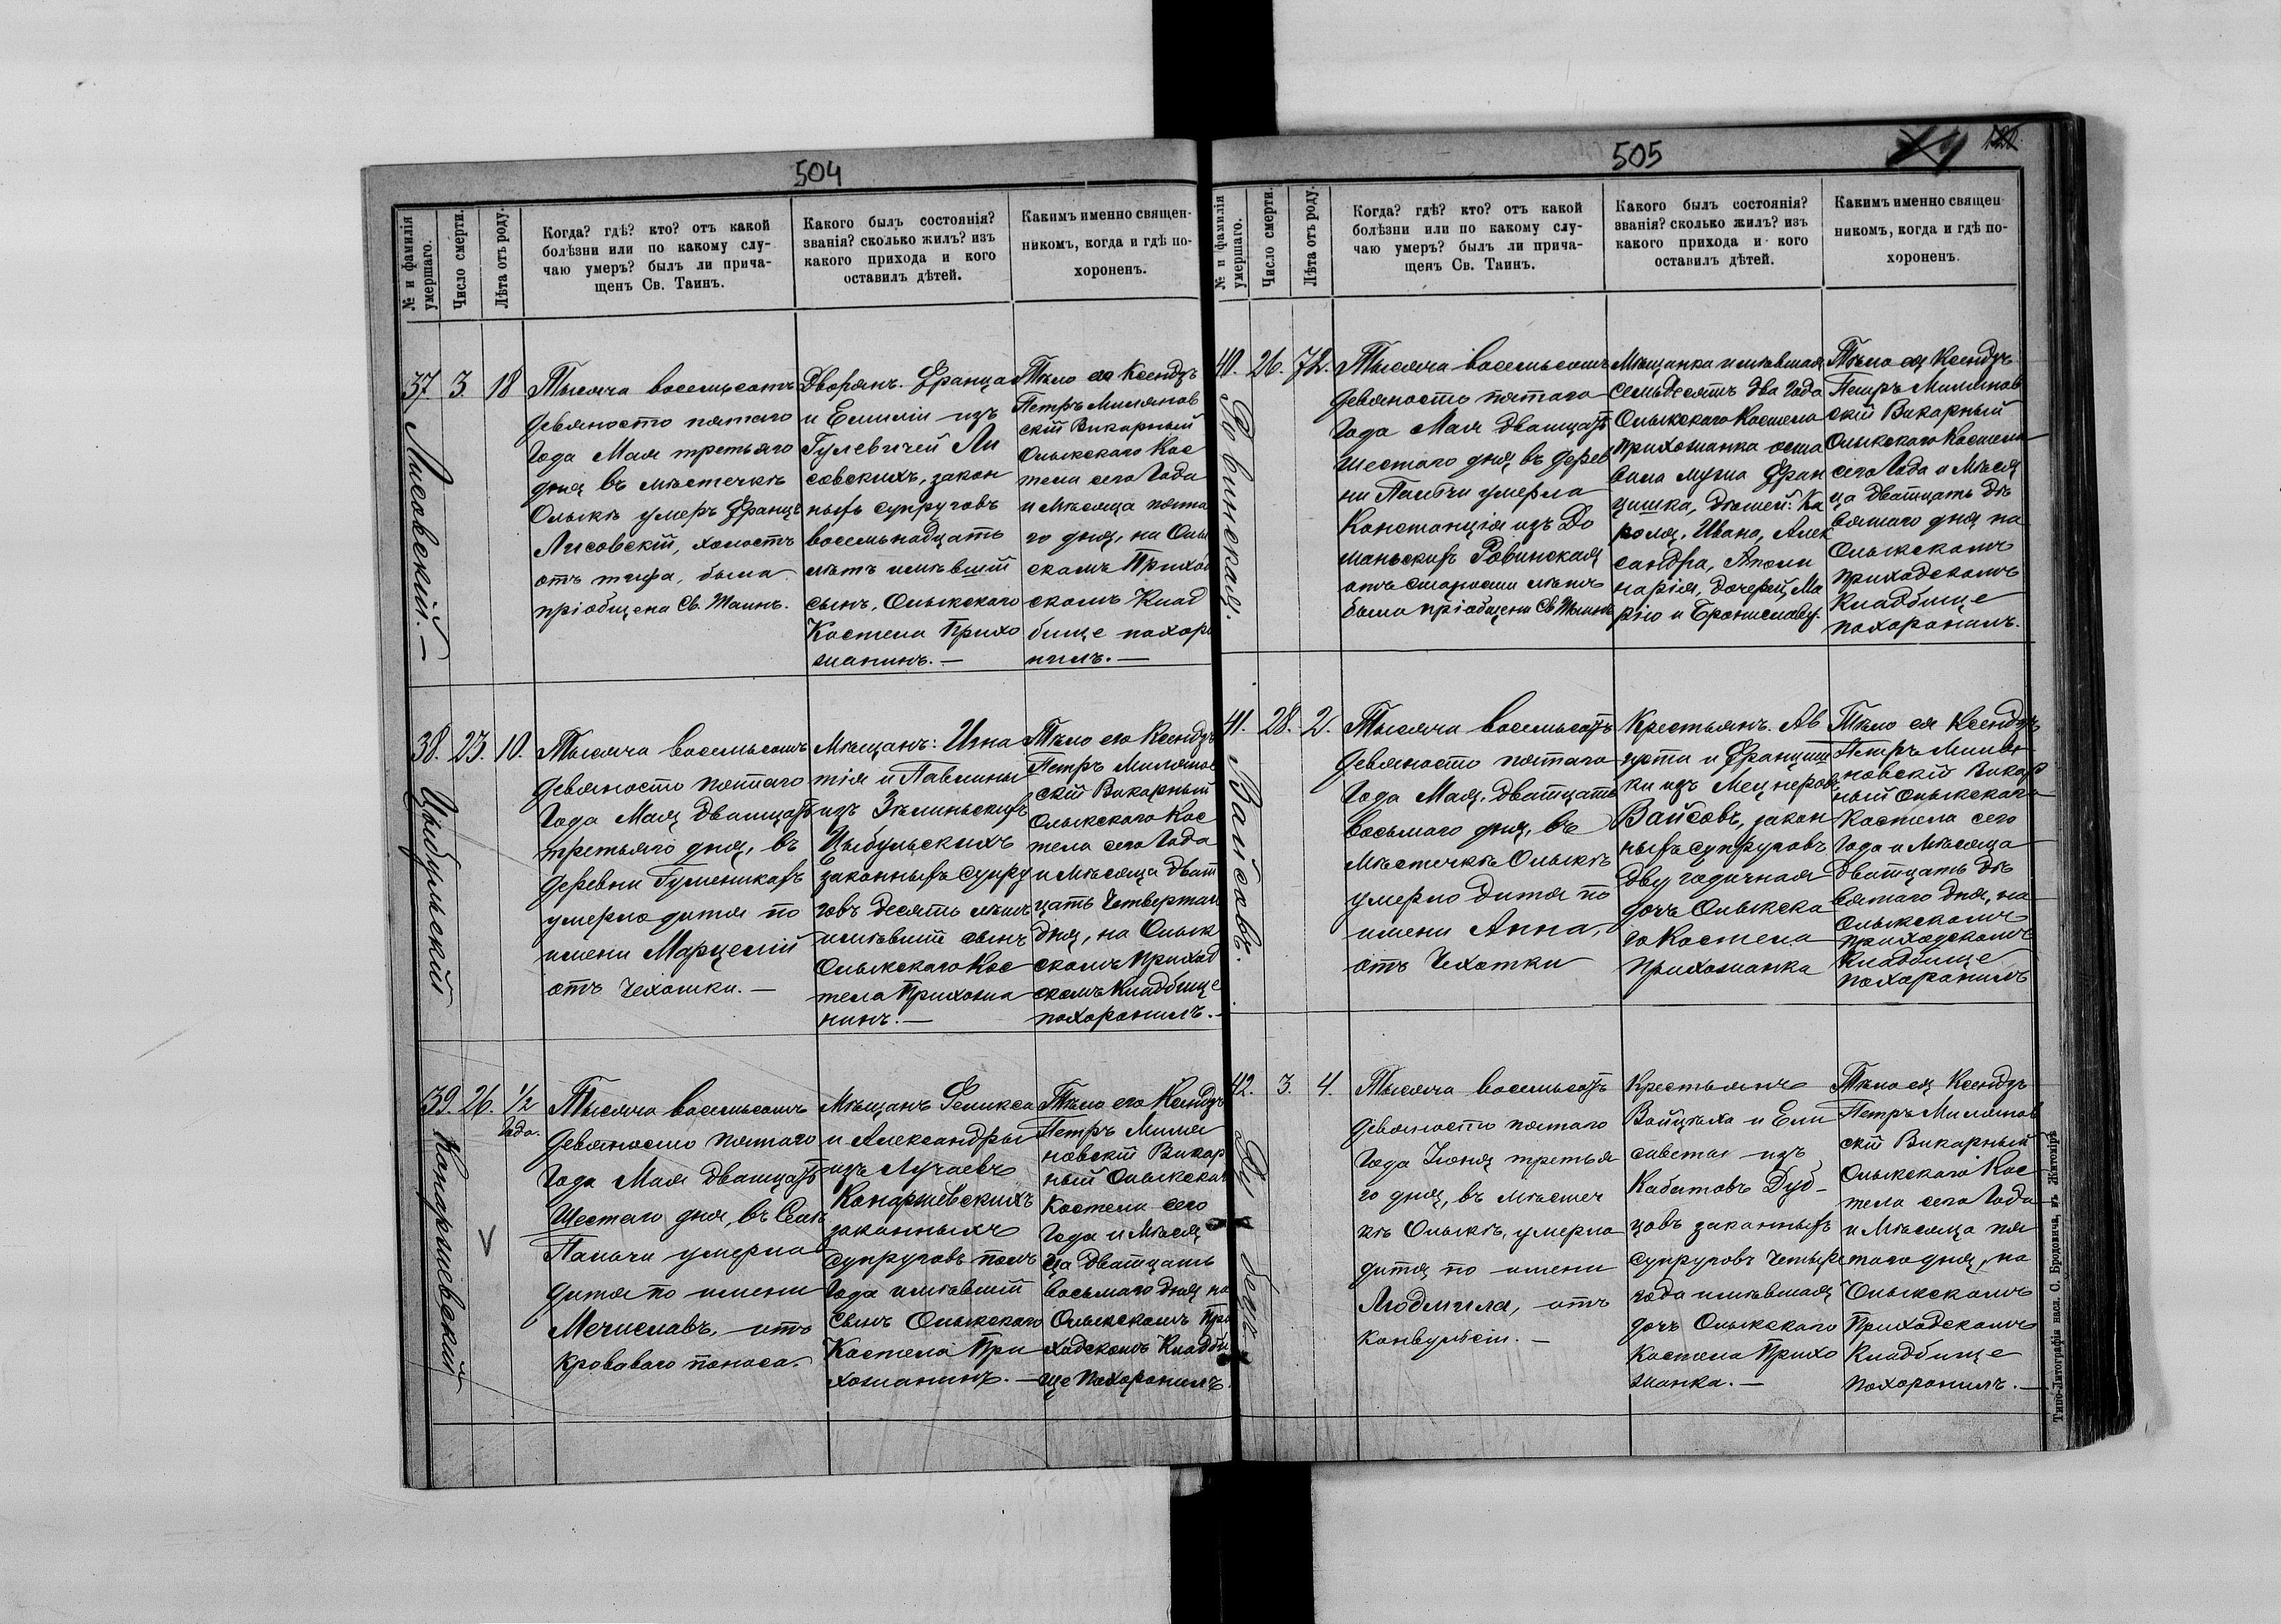 504
№ и фамилія
умершаго.
Число смерти.
Лѣта отъ роду.
Когда? гдѣ? кто? отъ какой
болѣзни или по какому слу-
чаю умеръ? былъ ли прича-
щенъ Св. Таинъ.
Какого былъ состоянія?
званія? сколько жилъ? изъ
какого прихода и кого
оставилъ дѣтей.
Какимъ именно священ-
никомъ, когда и гдѣ по-
хороненъ.
37
Лисовскій.—
3.
18
Тысяча восемьсотъ
девяносто пятаго
Года Мая третьяго
дня въ мѣстечкѣ
Олыкѣ умеръ Франце
Лисовскій, холостъ
отъ тифа, была
пріобщена Св. Таинъ.
Дворянъ. Франца
и Емиліи изъ
Гулевичей Ли
совскихъ, закон
ныхъ супруговъ
восемьнадцать
лѣтъ имѣвшій
сынъ, Олыкского
Костела Прихо
жанинъ.—
Тѣло ея Ксендзъ
Петръ Милянов
скій Викарный
Олыкскаго Кос
тела сего Года
и Мѣсяца пята
го дня, на Олы
скомъ Приход
скомъ Клад
бище похоро
нилъ.—
38.
Цыбульскій
23.
10.
Тысяча восемьсотъ
девяносто пятаго
Года Мая двадцать
третьяго дня, въ
деревни Гуменикахъ
умерло дитя по
имени Марцелій
отъ Чехотки.—
Мѣщанъ: Игна
тія и Павлины
изъ Зѣлинскихъ
Цыбульскихъ
законныхъ супру
говъ десять лѣтъ
имѣвшій сынъ
Олыкскаго Кос
тела Прихожа
нинъ.—
Тѣло его Ксендзъ
Петръ Миляно
скій Викарный
Олыкскаго Кос
тела сего Года
и Мѣсяца Двад
цать Четвертаго
дня, на Олык
скомъ Приход
скомъ Кладбище
похоронилъ.—
39.
Конаржевскій
26.
1/2
Года.
V
Тысяча восемьсотъ
девяносто пятаго
Года Мая двадцать
Шестаго дня, въ Селѣ
Пальчи умерла
дитя по имени
Мечиславъ, отъ
кроваваго поноса.
Мѣщанъ Феликса
и Александры
изъ Лучаевъ
Конаржевскихъ
законныхъ
супруговъ полъ
Года имѣвшій
сынъ Олыкскаго
Костела При
хожанинъ.—
Тѣло его Ксендзъ
Петръ Миля
новскій Викар
ный Олыкскаго
Костела сего
Года и Мѣся
ца двадцать
восьмаго дня на
Олыкскомъ При
ходскомъ Кладби
ще похоронилъ.
505
№ и фамилія
умершаго.
Число смерти.
Лѣта отъ роду.
Когда? гдѣ? кто? отъ какой
болѣзни или по какому слу-
чаю умеръ? былъ ли прича-
щенъ Св. Таинъ.
Какого былъ состоянія?
званія? сколько жилъ? изъ
какого прихода и кого
оставилъ дѣтей.
Какимъ именно священ-
никомъ, когда и гдѣ по-
хороненъ.
40.
Ровинская.
26.
72.
Тысяча восемьсотъ
девяносто пятаго
Года Мая двадцать
шестаго дня, въ дерев
ни Пальчи умерла
Констанція изъ До
маньскихъ Ровинская
отъ старости лѣтъ
была пріобщена Св. Таинъ
Мѣщанка имѣвшая
Семьдесятъ два Года
Олыкскаго Костела
прихожанка оста
вила мужа Фран
цишка, дѣтей: Ка
роля, Ивана, Алек
сандра, Аполи
нарія, дочерей, Ма
рію и Брониславу.
Тѣло ея Ксендзъ
Петръ Милянов
скій Викарный
Олыкскаго Костела
сего Года и Мѣся
ца Двадцать дѣ
вятаго дня на
Олыкскомъ
приходскомъ
Кладбище
похоронилъ.
41.
Вайсовъ.
28.
2.
Тысяча восемьсотъ
девяносто пятаго
Года Мая, двадцать
восьмаго дня, въ
мѣстечкѣ Олыкѣ
умерло дитя по
имени Анна,
отъ Чехотки
Крестьянъ. Ав
густа и Францишк
ки изъ Мецнеровъ
Вайсовъ, закон
ныхъ супруговъ
двугодичная
дочь Олыкска
го Костела
прихожанка
Тѣло ея Ксендзъ
Петръ Миля
новскій Викар
ный Олыкскаго
Костела сего
Года и Мѣсяца
двадцать дѣ
вятаго дня, на
Олыкскомъ
приходскомъ
Кладбище
похоронилъ
42.
3.
4.
Тысяча восемьсотъ
девяносто пятаго
Года Іюня третья
го дня, въ мѣстеч
кѣ Олыкѣ, умерла
дитя по имени
Людмила, отъ
конвульсіи.—
Крестьянъ
Войцѣха и Ели
саветы изъ
Кабатовъ Дуб-
цовъ законныхъ
супруговъ Четыре
года имѣвшая
дочь Олыкскаго
Костела Прихо
жанка.—
Тѣло ея Ксендзъ
Петръ Милянов
скій Викарный
Олыкскаго Кос
тела сего Года
и Мѣсяца пя
таго дня, на
Олыкскомъ
Приходскомъ
Кладбище
похоронилъ.—
Типо-Литографія насл. С. Бродовича, въ Житомірѣ